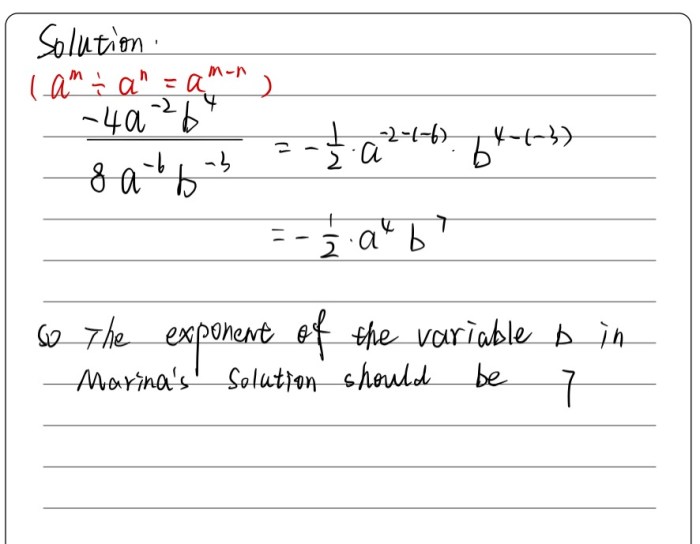 Solution.
(a^m ÷ a^n = a^{m-n})
\frac{-4a^{-2}b^4}{8a^{-6}b^{-3}} = -\frac{1}{2}·a^{-2-(-6)}·b^{4-(-3)}
= -\frac{1}{2}·a^4 b^7
so The exponent of the variable b in
Marina's Solution should be 7